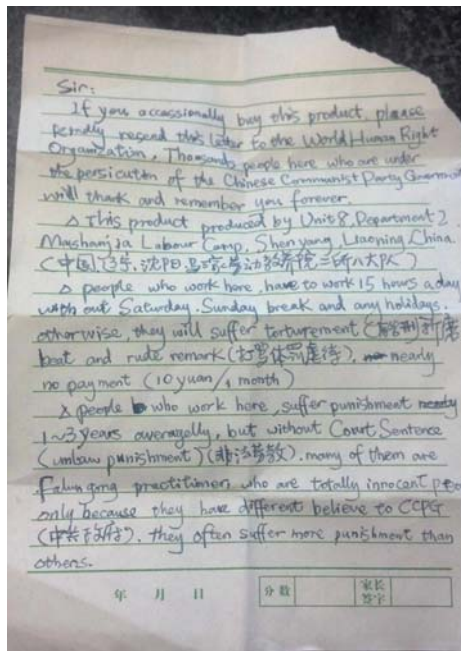 Sir:
If you occassionally buy this product, please
kendly resend this letter to the World Human Right
Organization. Thousands people here who are under
the persicution of the Chinese Communist Party Government
will thank and remember you forever.
△ This product produced by Unit 8, Department 2,
Mashanjia Labour Camp, Shen yang, Liaoning China.
(中国,辽宁,沈阳,马三家劳动教养院二所八大队)
△ people who work here, have to work 15 hours a day
with out Saturday, Sunday break and any holidays.
otherwise, they will suffer torturement
beat and rude remark (打骂体罚虐待). nearly
no payment (10 yuan/1 month)
△ people who work here, suffer punishment
1~3 years averagelly, but without Court Sentence
(unlaw punishment) (非法劳教). many of them are
Falungong practitioner, who are totally innocent
only because they have different believe to CCPG
(中共政府). they often suffer more punishment than
others.
年 月 日 分数 家长
签字